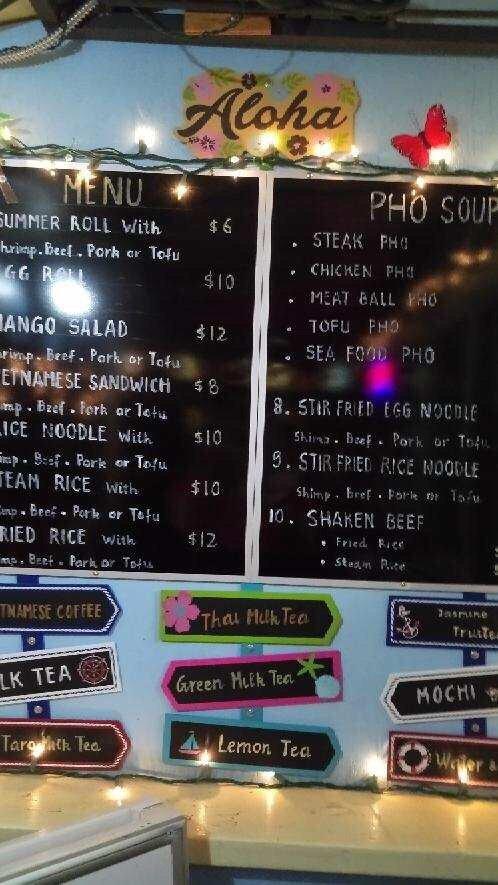 Aloha
MENU
SUMMER ROLL With $6
Shrimp. Beef. Pork or Tofu
EGG ROLL $10
MANGO SALAD $12
hrimp. Beef. Pork or Tofu
ETNAMESE SANDWICH $8
imp. Beef. Pork or Tofu
RICE NOODLE With $10
imp. Beef. Pork or Tofu
TEAM RICE With $10
imp. Beef. Pork or Tofu
RIED RICE With $12
imp. Beef. Pork or Tofu
PHO SOUP
• STEAK PHO
• CHICKEN PHO
• MEAT BALL PHO
• TOFU PHO
• SEA FOOD PHO
8. STIR FRIED EGG NOODLE
Shimp. Beef. Pork or Tofu
9. STIR FRIED RICE NOODLE
Shimp. Bef. Pork or Tofu
10. SHAKEN BEEF
• Fried Rice
• Steam Rice
TNAMESE COFFEE
Thai Milk Tea
Jasmine
Fruit
LK TEA
Green Milk Tea
MOCHI
Taro Milk Tea
Lemon Tea
Water &